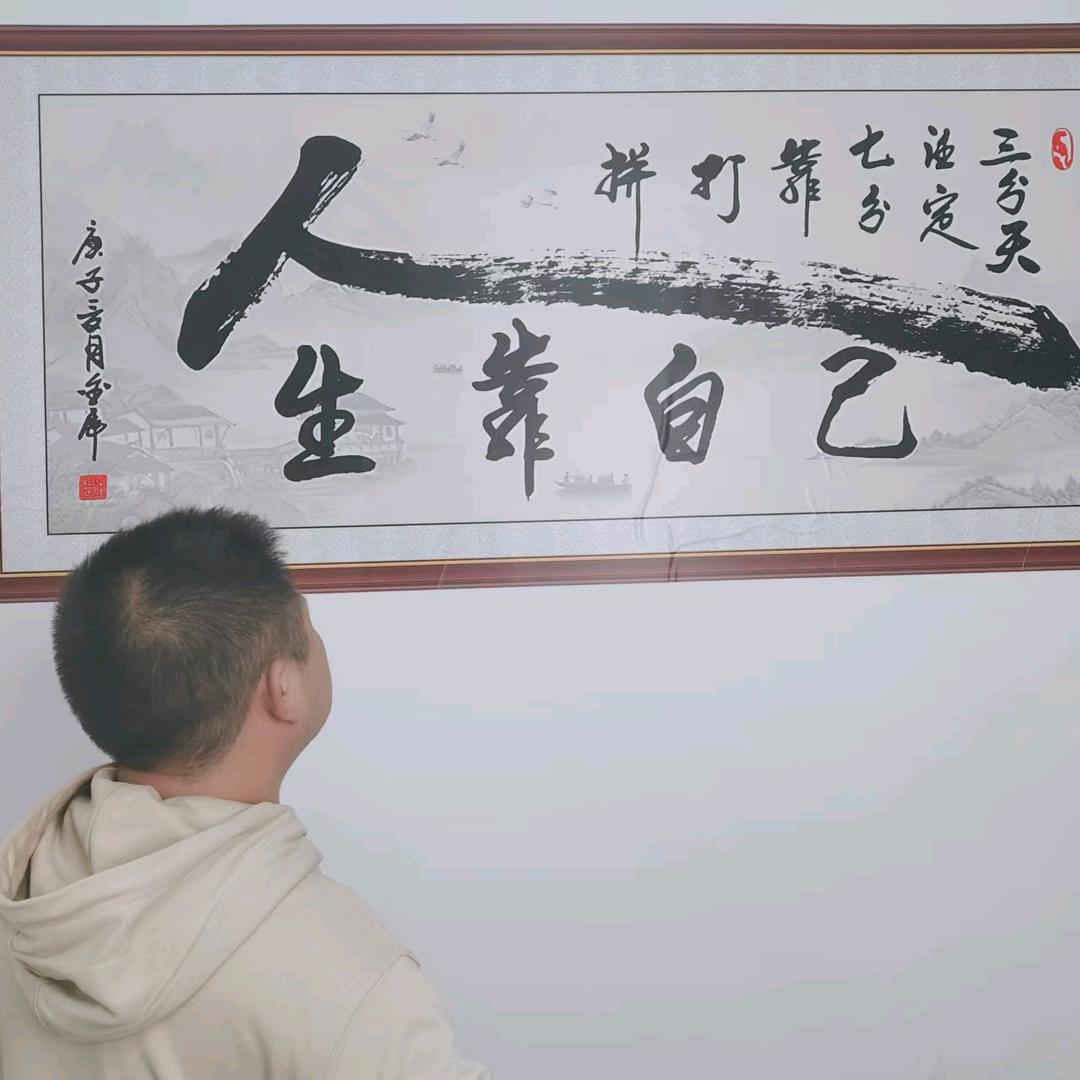 三分天
注定
七分
靠
打
拼
人
生靠自己
庚子